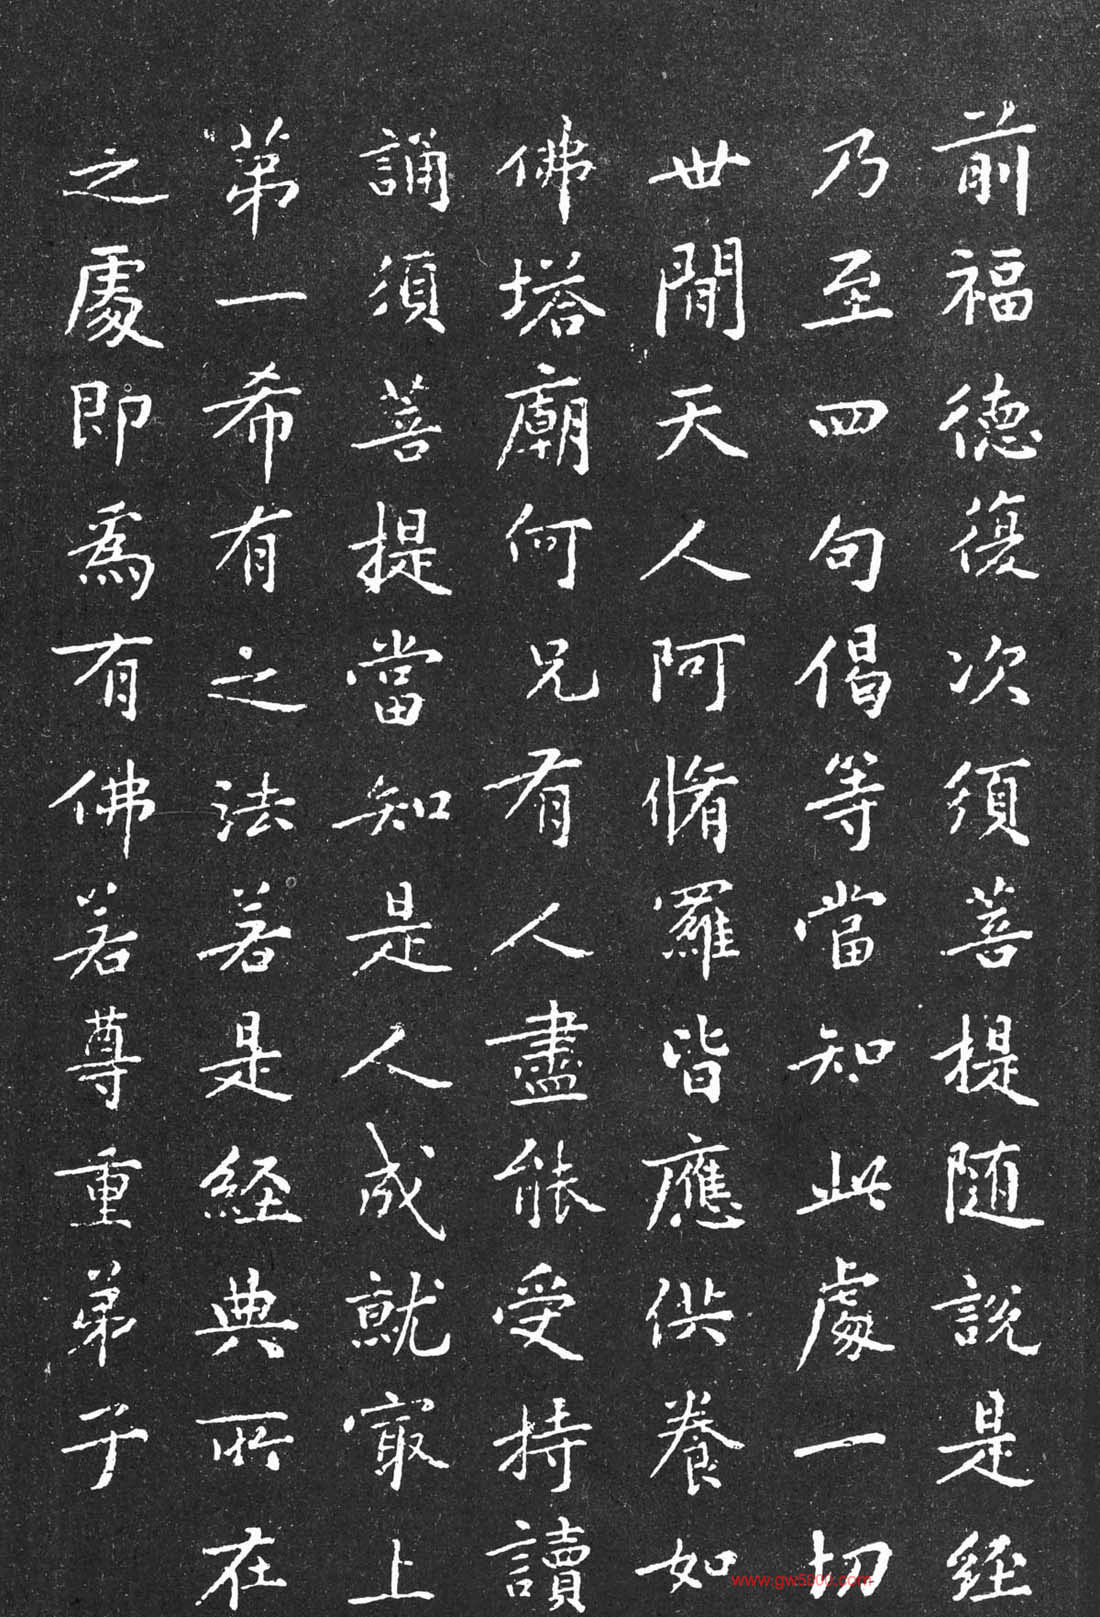 前福德復次須菩提随說是経
乃至四句偈等當知此處一切
世間天人阿脩羅皆應供養如
佛塔廟何況有人盡能受持讀
誦須菩提當知是人成就冣上
第一希有之法若是経典所在
之處即爲有佛若尊重弟子
www.gw5000.com